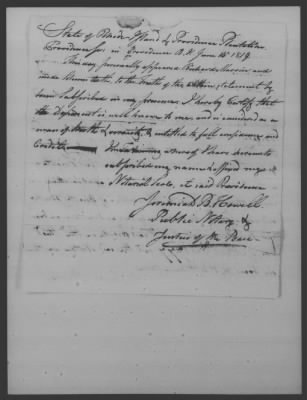 State of Rhode Island & Providence Plantations
Providence Sc. in Providence R.I. June 14 1819.
This day personally appeared Richard Marvin and
made Solemn Oath to the truth of the within statement by
him Subscribed in my presence. I hereby Certify that
the Deponent is well known to me and is considered as a
man of truth & veracity & entitled to full confidence and
Credit
In Testimony whereof I have hereunto
subscribed my name & affixed my
Notarial Seal, at said Providence
Jeremiah B. Howell
Public Notary &
Justice of the Peace